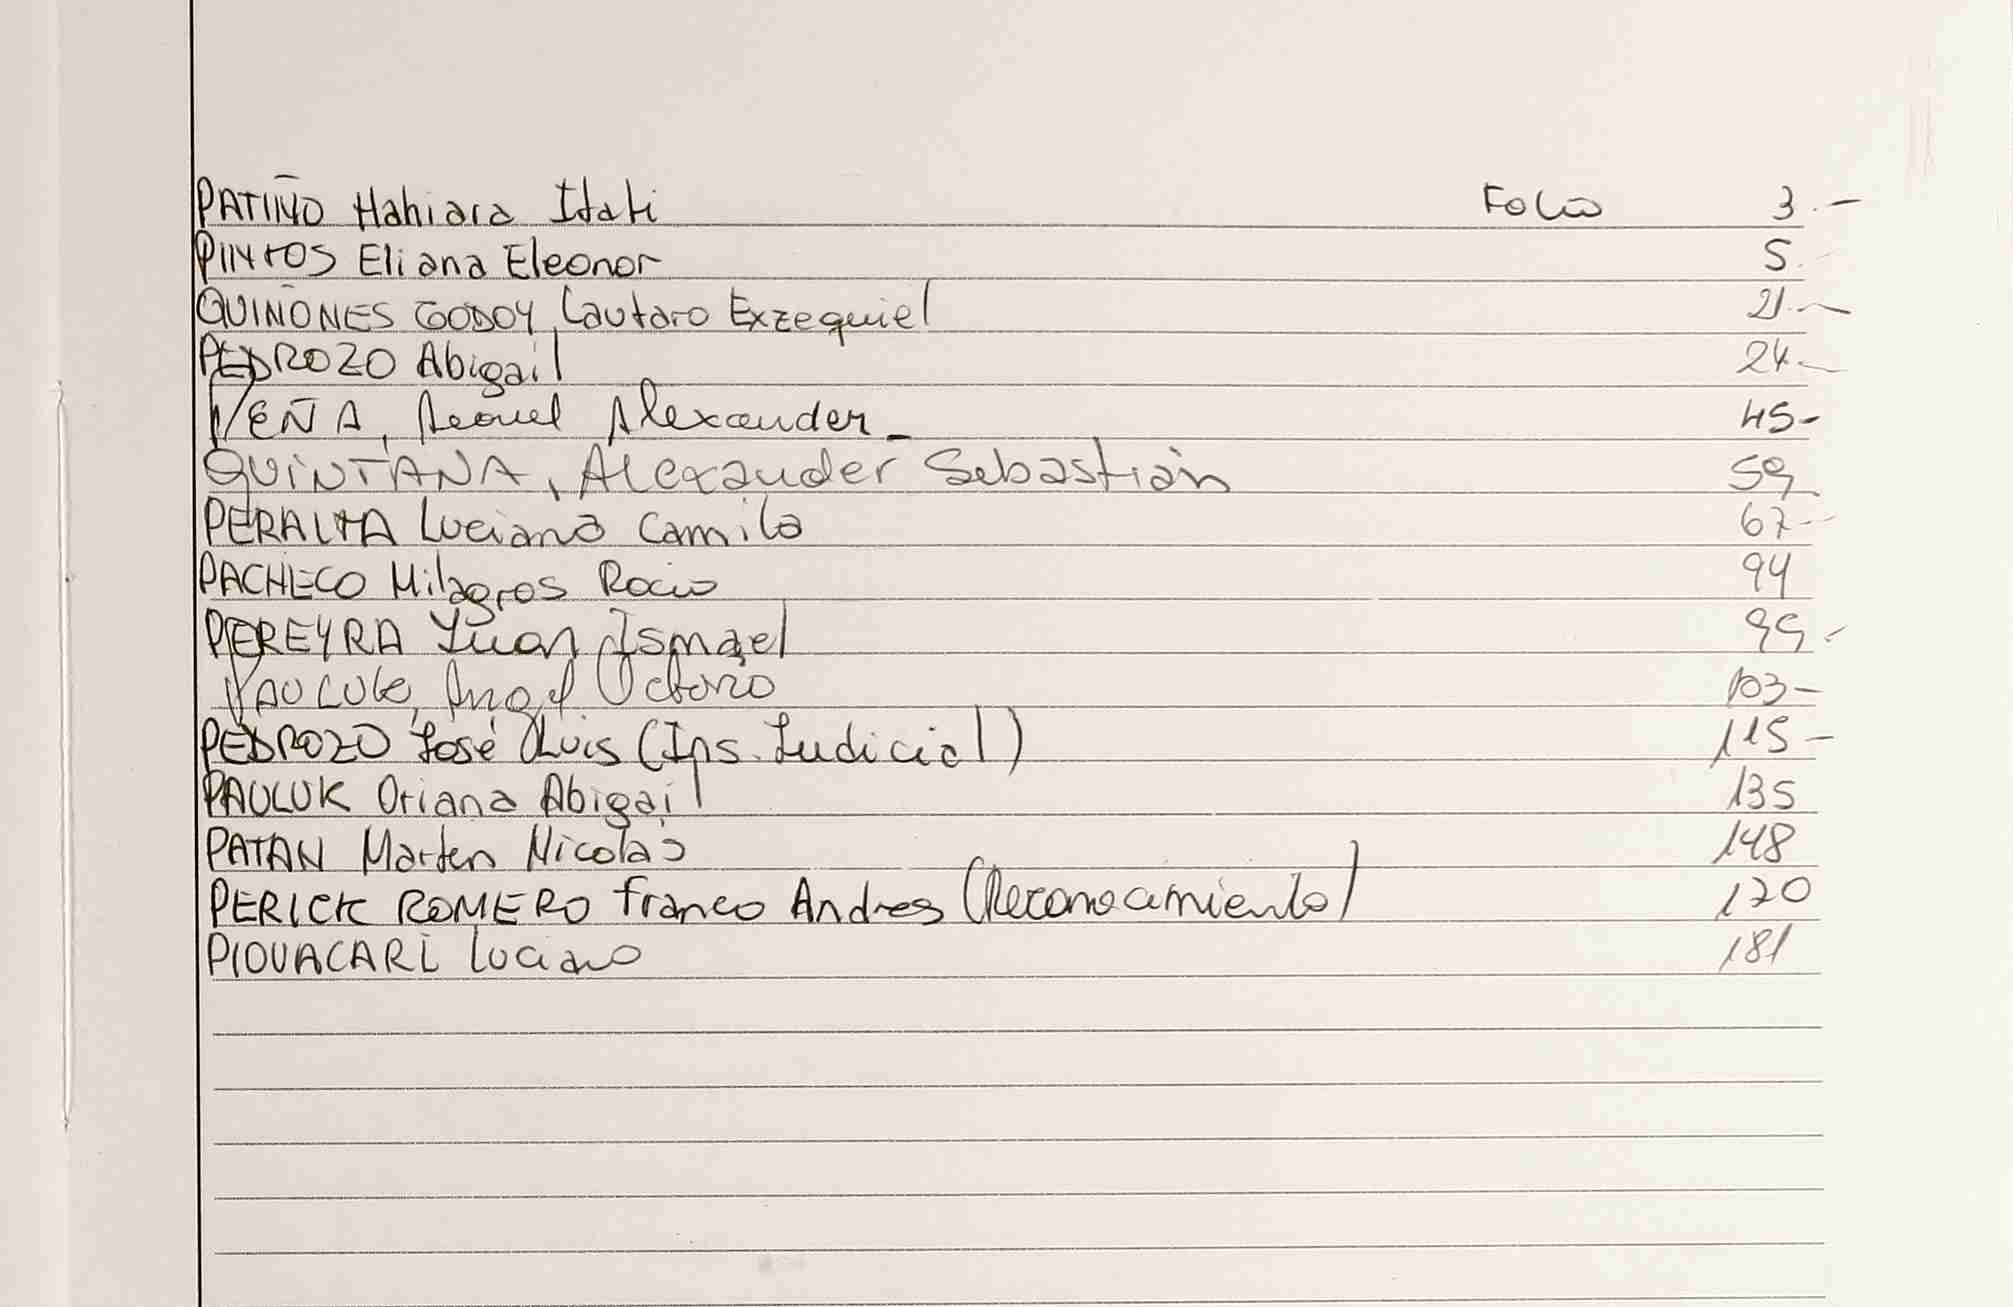 PATIÑO Hahiara Itati Folio 3.-
PINTOS Eliana Eleonor 5.
QUIÑONES GODOY, Lautaro Exzequiel 21.-
PEDROZO Abigail 24.-
PEÑA, Alexander- 45-
QUINTANA, Alexander Sebastián 59
PERALTA Luciano Camilo 67-
PACHECO Milagros Rocio 94
PEREYRA Juan Ismael 99-
PAULUK, Angel Octavio 103-
PEDROZO José Luis (Ins. Judicial) 115-
PAULUK Oriana Abigail 135
PATAN Marten Nicolás 148
PERICK ROMERO Franco Andres (Reconocimiento) 170
PIOVACARI Luciano 181